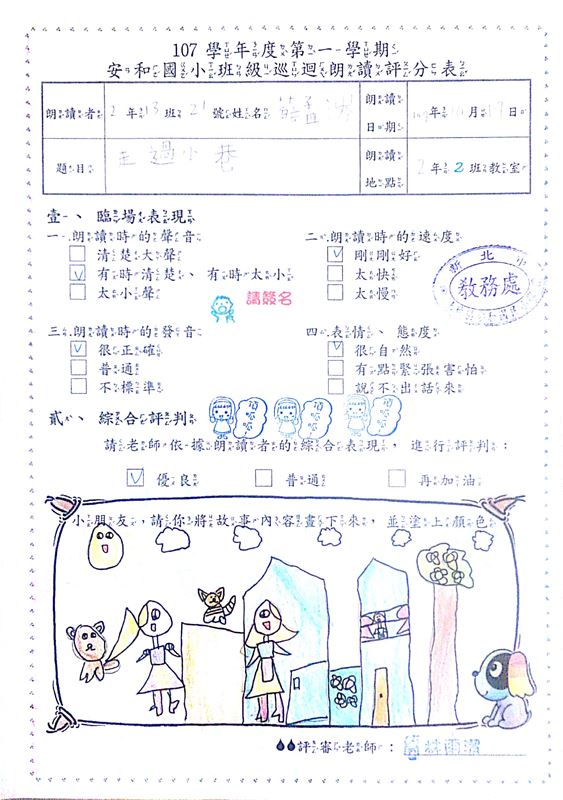 107 學年度第一學期
安和國小班級巡迴朗讀評分表
朗讀者 2 年 13 班 21 號姓名
朗讀日期 年 月 日
題目 過小巷
朗讀地點 2 年 2 班教室
壹、臨場表現
一、朗讀時的聲音
清楚大聲
有時清楚、有時太小
太小聲
請簽名
二、朗讀時的速度
剛剛好
太快
太慢
新北市
教務處
三、朗讀時的發音
很正確
普通
不標準
四、表情、態度
很自然
有點緊張害怕
說不出話來
貳、綜合評判
請老師依據朗讀者的綜合表現,進行評判:
優良 普通 再加油
小朋友,請你將故事內容畫下來,並塗上顏色
評審老師: